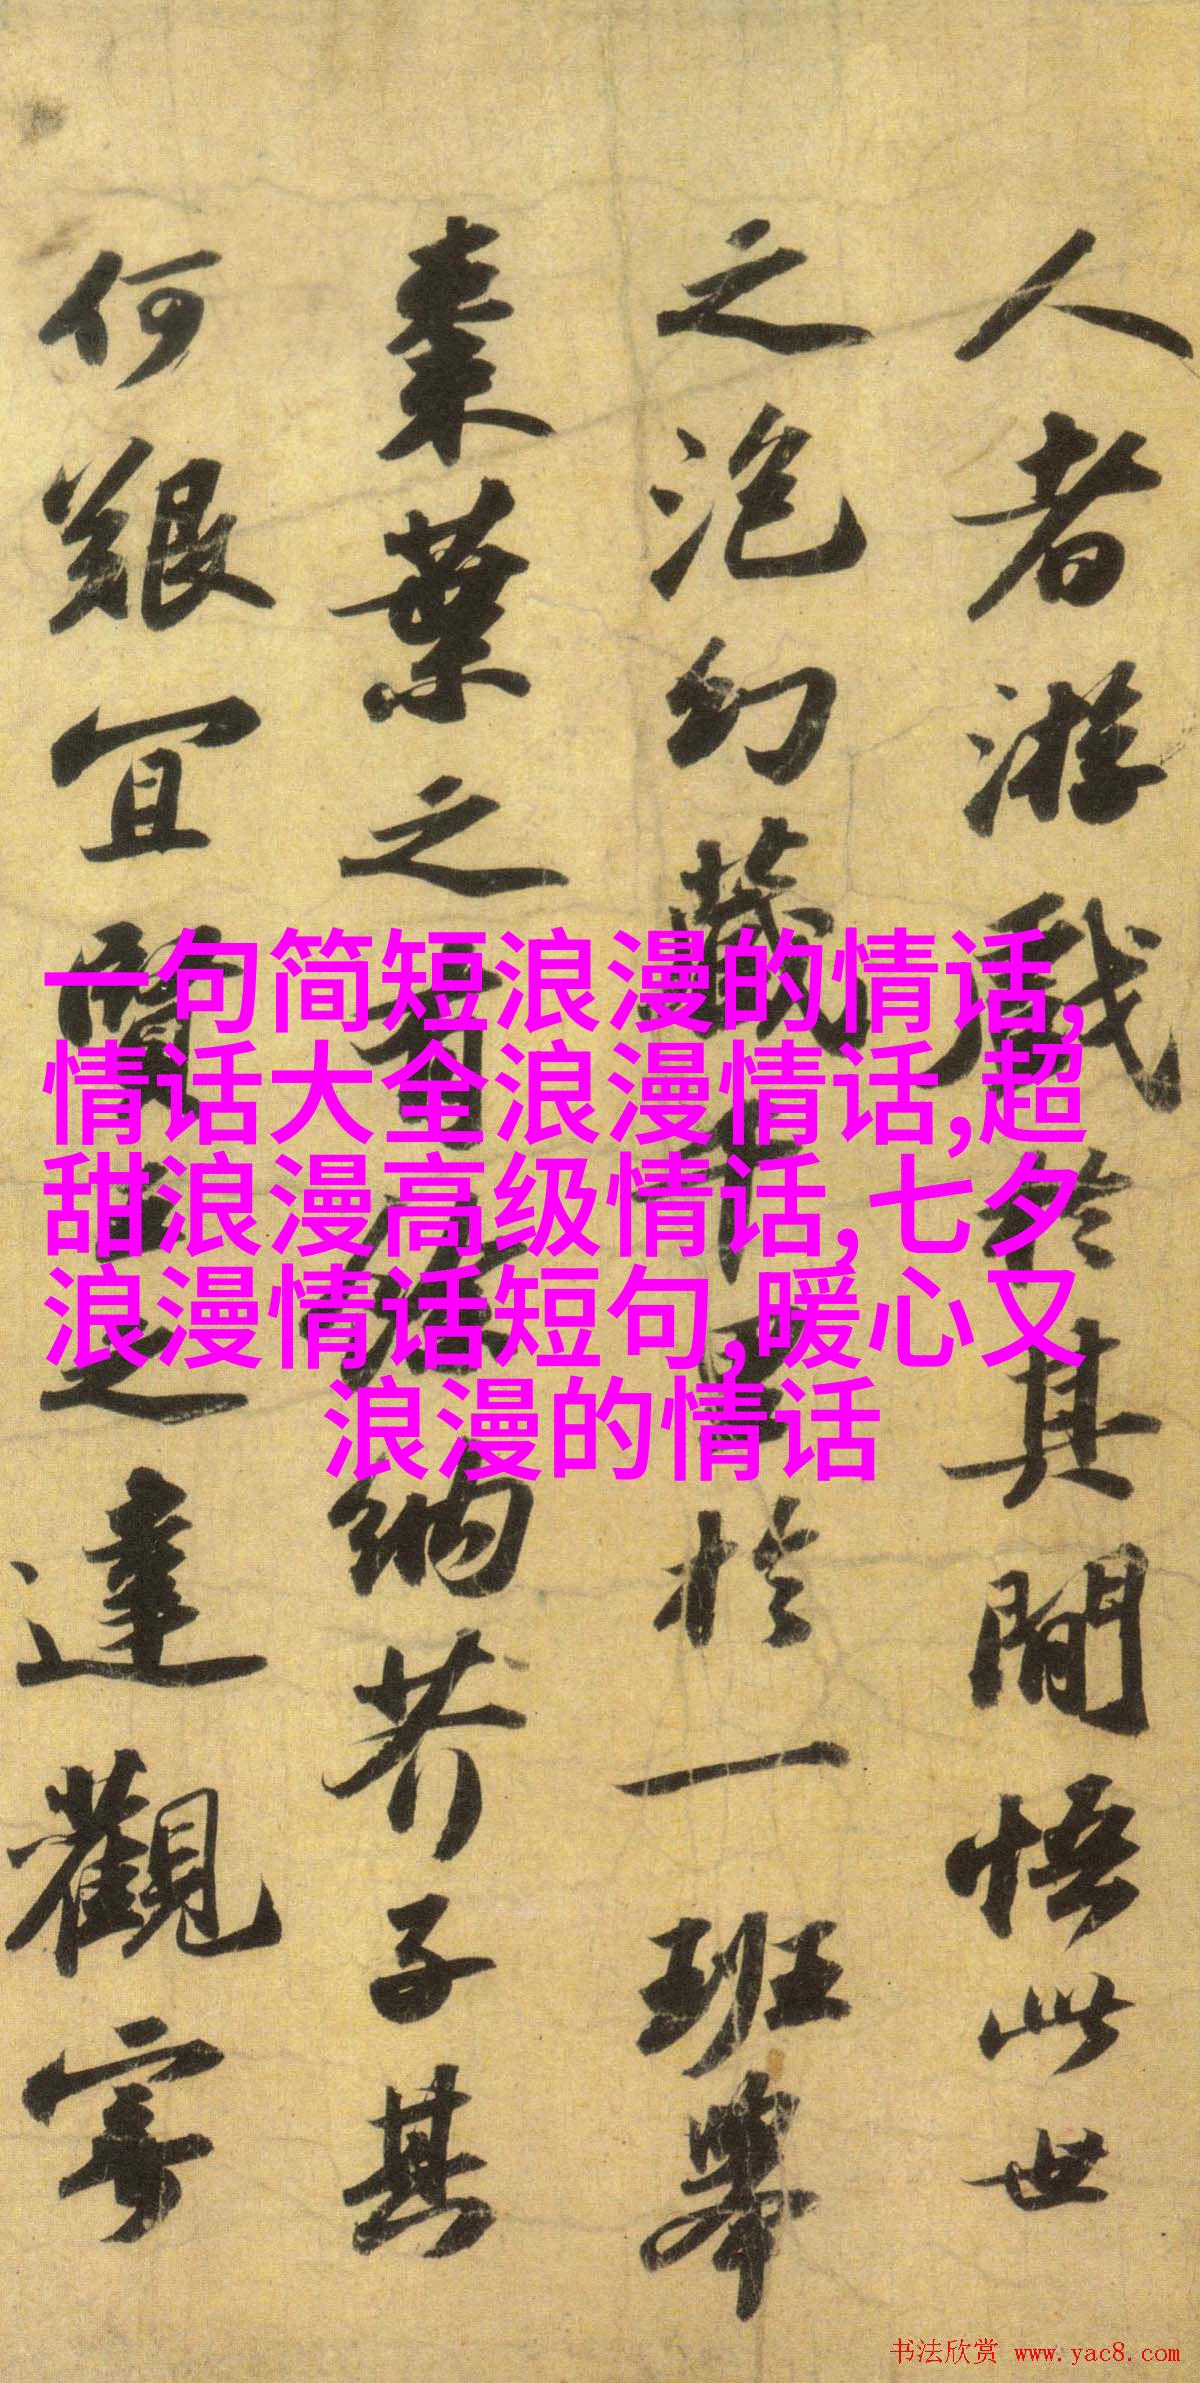 人者游戲於其間悟此世
之泡幻藏千里於一班舉
棗葉之
納芥子其
何艱宜賢
之達觀寄
一句简短浪漫的情话,
情话大全浪漫情话,超
甜浪漫高级情话,七夕
浪漫情话短句,暖心又
浪漫的情话
书法欣赏 www.yac8.com